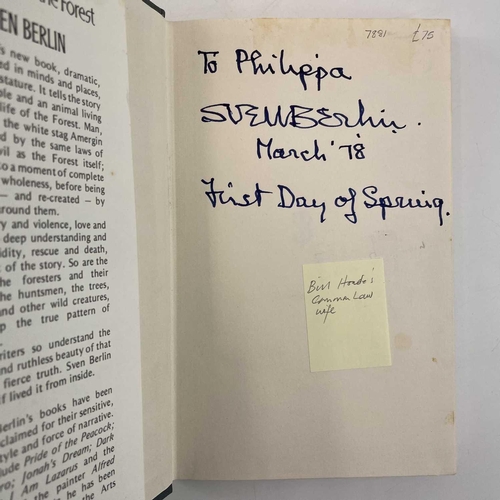 the Forest
EN BERLIN
's new book, dramatic,
ed in minds and places,
stature. It tells the story
ple and an animal living
life of the Forest. Man,
the white stag Amergin
ed by the same laws of
vil as the Forest itself;
to a moment of complete
wholeness, before being
— and re-created — by
round them.
ry and violence, love and
deep understanding and
idity, rescue and death,
t of the story. So are the
he foresters and their
the huntsmen, the trees,
and other wild creatures,
p the true pattern of
riters so understand the
and ruthless beauty of that
fierce truth. Sven Berlin
if lived it from inside.
Berlin's books have been
claimed for their sensitive,
style and force of narrative.
lude Pride of the Peacock;
ro; Jonah's Dream; Dark
Am Lazarus and the
the painter Alfred
he has been
the Arts
7881 £75
To Philippa
SVEN BERLIN.
March '78
First Day of Spring.
Bill
Common Law
wife